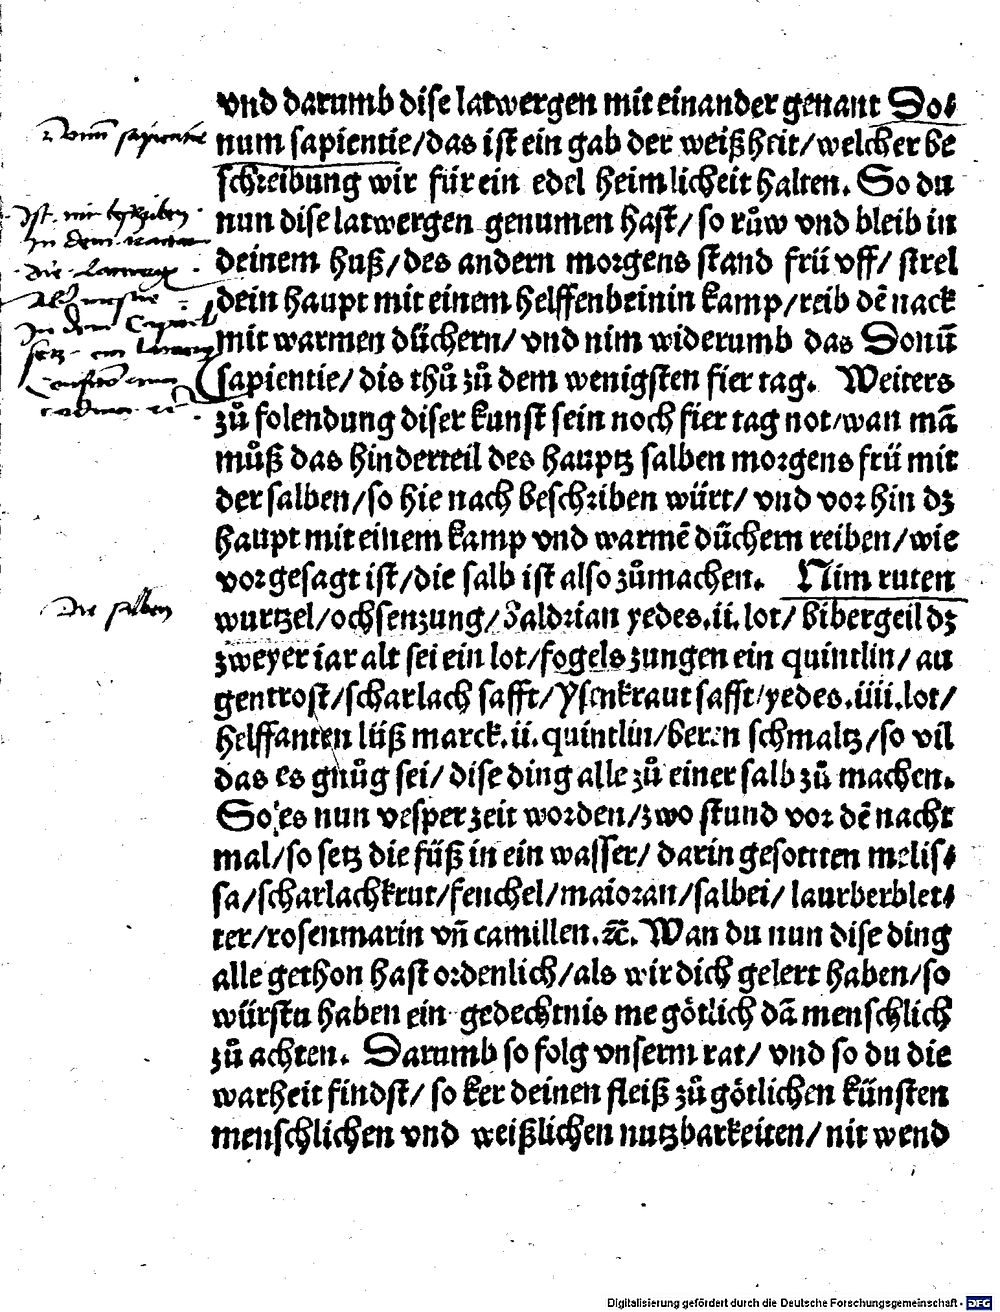 vnd darumb dise latwergen mit einander genant Do⸗
num sapientie/das ist ein gab der weißheit/welcher be
schreibung wir für ein edel heimlicheit halten. So du
nun dise latwergen genumen hast/ so růw vnd bleib in
deinem huß/des andern morgens stand frü vff/ strel
dein haupt mit einem helffenbeinin kamp/reib dē nack
mit warmen düchern/ vnd nim widerumb das Donū
sapientie/ dis thů zů dem wenigsten fier tag. Weiters
zů folendung diser kunst sein noch fier tag not/wan mā
můß das hinderteil des hauptz salben morgens frü mit
der salben/so hie nach beschriben würt/ vnd vor hin dz
haupt mit einem kamp vnd warmē düchern reiben/wie
vorgesagt ist/die salb ist also zůmachen. Nim ruten
Die salben
wurtzel/ochsenzung/Baldrian yedes.ii.lot/ bibergeil dz
zweyer iar alt sei ein lot/fogels zungen ein quintlin/ au
gentrost/scharlach safft/Ysenkraut safft/yedes.iiii.lot/
helffanten lüß marck.ii.quintlin/beren schmaltz/so vil
das es gnůg sei/ dise ding alle zů einer salb zů machen.
So es nun vesper zeit worden/zwo stund vor dē nacht
mal/so setz die füß in ein wasser/ darin gesottten melis⸗
sa/scharlachkrut/fenchel/maioran/salbei/ laurberblet⸗
ter/rosenmarin vñ camillen.ꝛc. Wan du nun dise ding
alle gethon hast ordenlich/als wir dich gelert haben/so
würstu haben ein gedechtnis me götlich dā menschlich
zů achten. Darumb so folg vnserm rat/ vnd so du die
warheit findst/ so ker deinen fleiß zů götlichen künsten
menschlichen vnd weißlichen nutzbarkeiten/ nit wend
Digitalisierung gefördert durch die Deutsche Forschungsgemeinschaft - DFG